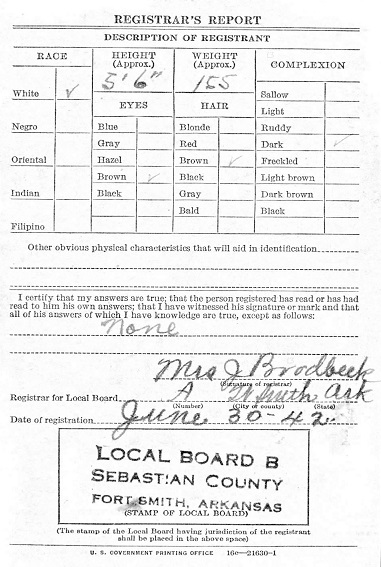 REGISTRAR'S REPORT
DESCRIPTION OF REGISTRANT
RACE
HEIGHT (Approx.)
WEIGHT (Approx.)
COMPLEXION
5' 6"
155
White ✓
EYES
HAIR
Sallow
Light
Negro
Blue
Blonde
Ruddy
Gray
Red
Dark ✓
Oriental
Hazel
Brown ✓
Freckled
Brown ✓
Black
Light brown
Indian
Black
Gray
Dark brown
Bald
Black
Filipino
Other obvious physical characteristics that will aid in identification
I certify that my answers are true; that the person registered has read or has had
read to him his own answers; that I have witnessed his signature or mark and that
all of his answers of which I have knowledge are true, except as follows:
None
Mrs J Brodbeck
(Signature of registrar)
Registrar for Local Board A Ft Smith Ark
(Number) (City or county) (State)
Date of registration June 30-42
LOCAL BOARD B
SEBASTIAN COUNTY
FORT SMITH, ARKANSAS
(STAMP OF LOCAL BOARD)
(The stamp of the Local Board having jurisdiction of the registrant
shall be placed in the above space)
U. S. GOVERNMENT PRINTING OFFICE 16c—21630-1